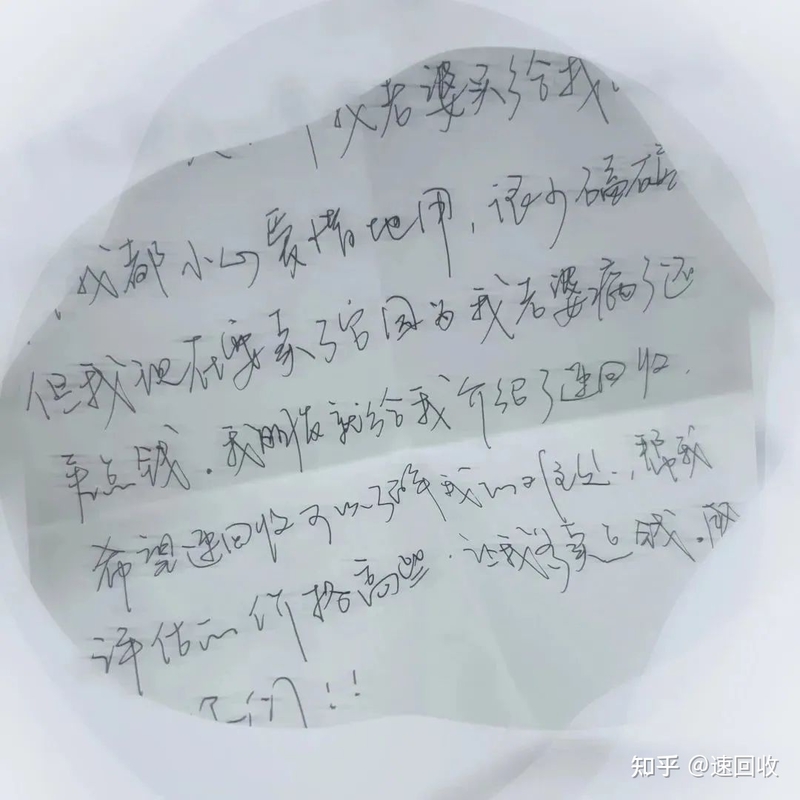 我老婆买给我.
我都小心爱惜地用,很少磕碰
但我现在要卖了它因为我老婆病了还
差点钱.我朋友就给我介绍了速回收.
希望速回收可以了解我的难处.帮我
评估的价格高些.让我多卖点钱.
们!!
知乎 @速回收